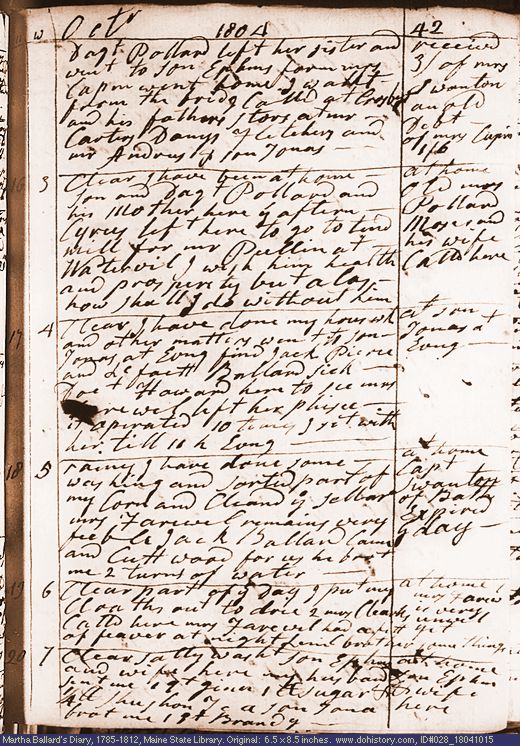 w Octr 1804 42
Dagt Pollard left her sister and
went to son Ephms from mrs
Capin went home I walkt
from the bridg Calld at Crosbys
and his fathers stors at mr
Carters
and
mr Andrus & son Jonas
received
3/ of mrs
Swanton
an old
Debt
of mrs Capin
1/6
16 3 Clear I have been at home
son and Dagt Pollard and
his Mother here ye aftern
Cyrus left here to go to tend
mill for mr Pullin at
Watervil I wish him health
and prosperity but alas
how shall I do without him
at home
old mrs
Pollard
Moses and
his wife
Calld here
17 4 Clear I have done my houswk
and other matters went to son
Jonas at Evng find Jack Pierce
and De faett Ballard sick
Doct Howard here to see mrs
left her phisic
it opirated 10 times I set with
her till 10 h Evng
at son
Jonas at
Evng
18 5 rainy I have done some
washing and sorted part of
my Corn and Cleand ye sellar
mrs Farewel remains very
feeble Jack Ballard Came
and Cutt wood for us he brot
me 2 turns of water
at home
Capt
Swantons
Babe
Expired
ye day
19 6 Clear part of ye day I put my
Cloaths out to drie 2 mrs Clearks
Calld here mrs Farewel had a fitt
of feaver at night
at home
mrs Farewel
is very
unwel
yet
20 7 Clear Sally washt son Ephm
and wife here my husband
sent me 1 qt ginn 1 lb sugar
son Jona
sent me 1 qt Brandy
at home
son Ephm
& wife
here
Martha Ballard's Diary, 1785-1812, Maine State Library. Original: 6.5 x 8.5 inches. www.dohistory.com, ID#028_18041015